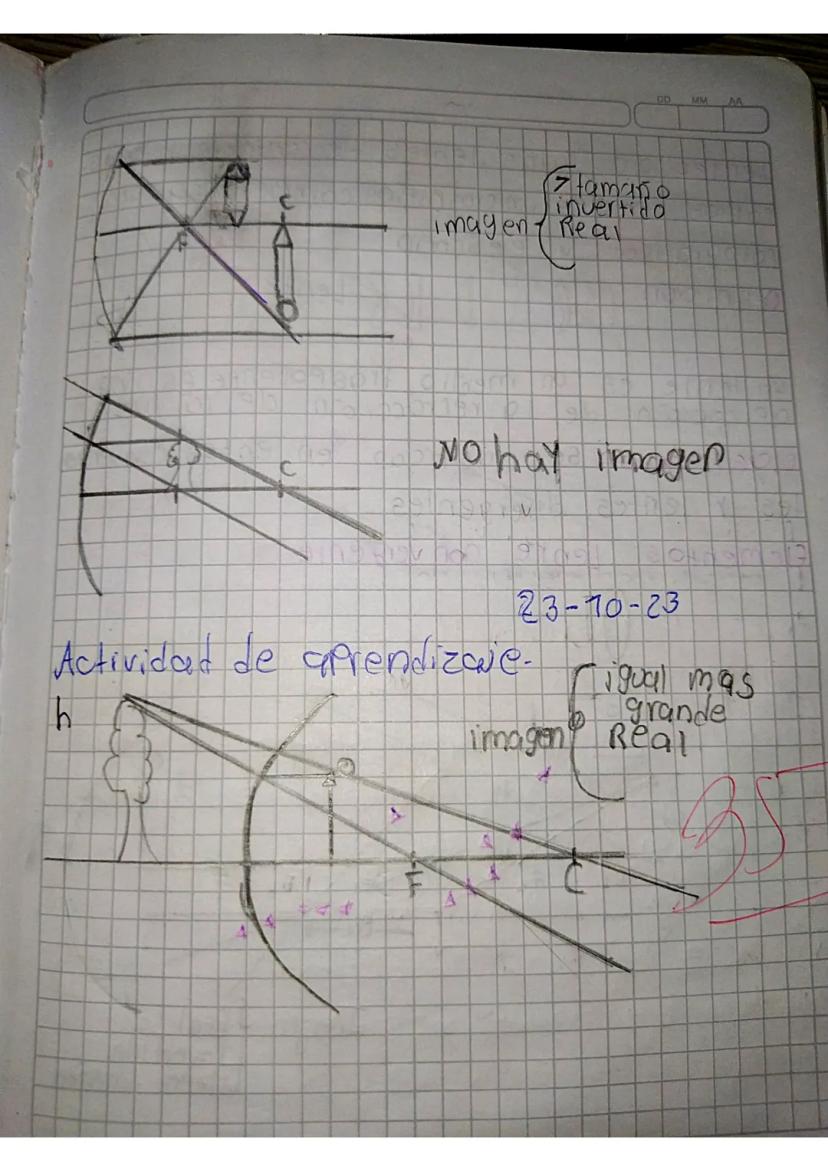 DD MM AA
C
F
imagen
> tamaño
invertido
Real
F
C
No hay imagen
23-10-23
Actividad de aprendizaje.
h
imagen
igual mas
grande
Real
O
F
C